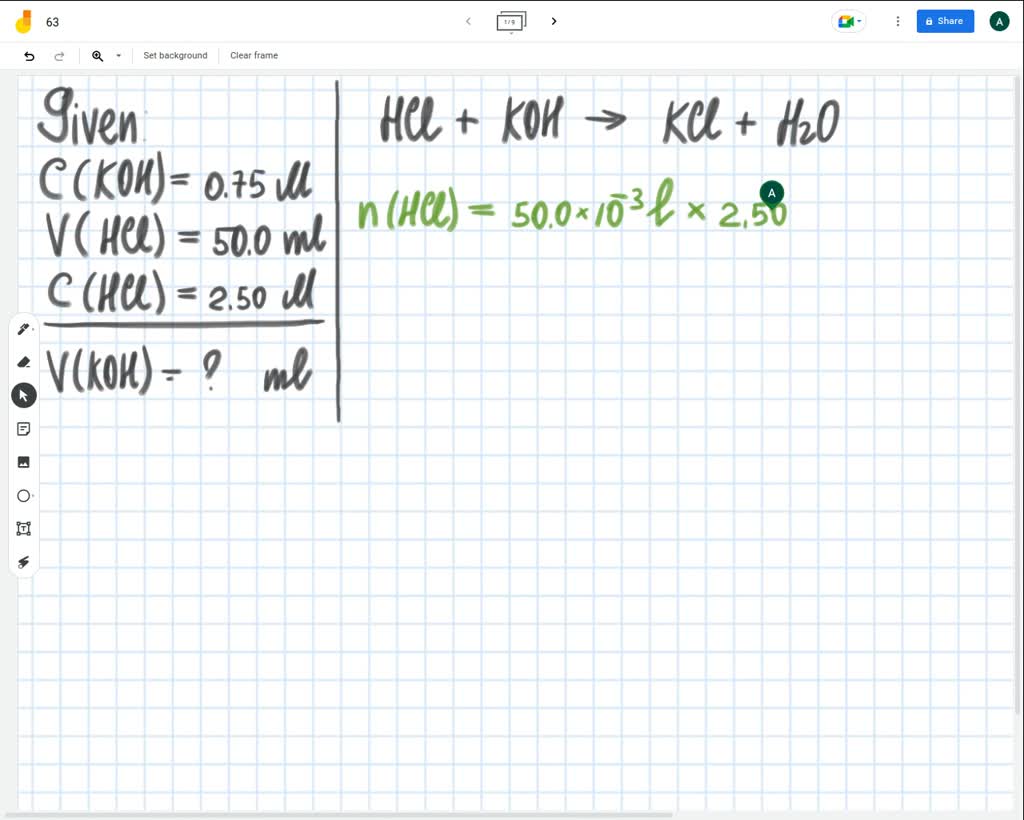 63
1/9
Share
A
Set background
Clear frame
Given:
C(KOH) = 0.75 M
V(HCl) = 50.0 ml
C(HCl) = 2.50 M
V(KOH) = ? ml
HCl + KOH → KCl + H₂O
A
n(HCl) = 50.0 × 10⁻³ l × 2.50